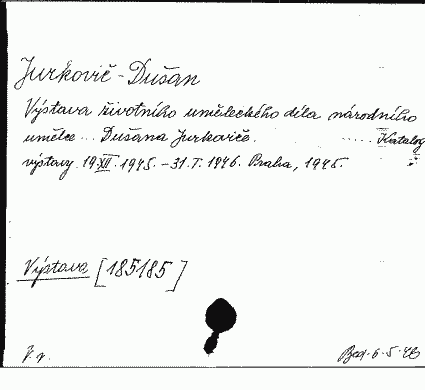 Jurkovič - Dušan
Výstava životního uměleckého díla národního
umělce ... Dušana Jurkoviče. ..... Katalog
výstavy. 19.XII.1945. - 31.I.1946. Praha, 1945.
Výstava [185185]
Bed. 6.5.46